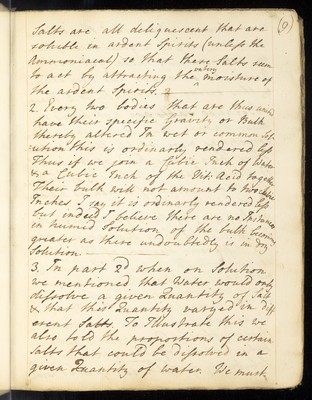 (9)
Salts are all deliquescent that are
soluble in ardent Spirits (unless the
Ammoniacal) so that these Salts seem
to act by attracting the watery moisture of
the ardent Spirits.
2. Every two bodies that are thus
have their specific Gravity or Bulk
thereby altered In wet or common Sol-
ution this is ordinarly rendered less
Thus if we join a Cubic Inch of Water
& a Cubic Inch of the Vit: Acid together
Their bulk will not amount to two Cubic
Inches I say it is ordinarly rendered less
but indeed I believe there are no Instances
in humid Solution of the bulk becoming
greater as there undoubtedly is in dry
Solution.
3. In part 2d when on Solution
we mentioned that Water would only
dissolve a given Quantity of Salt
& that this Quantity varyed in diff
erent Salts. To Illustrate this we
also told the proportions of certain
Salts that could be dissolved in a
given Quantity of water. We must